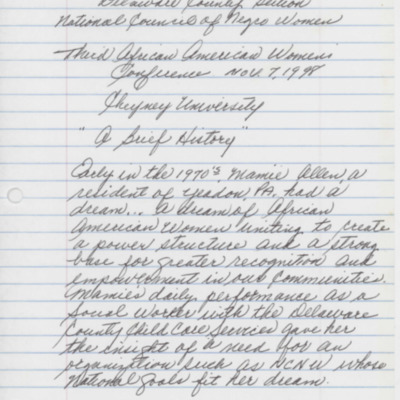 Delaware County Section
National Council of Negro Women
Third African American Womens
Conference Nov. 7, 1998
Cheyney University
"A Brief History"
Early in the 1970's Mamie Allen, a
resident of Yeadon, PA. had a
dream... a dream of African
American Women uniting to create
a power structure and a strong
base for greater recognition and
empowerment in our communities.
Mamie's daily performance as a
Social Worker with the Delaware
County Child Care Services gave her
the insight of a need for an
organization such as NCNW whose
National Goals fit her dream.